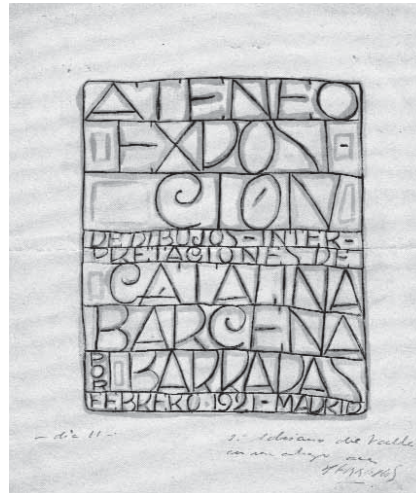 ATENEO
EXPOSI-
CION
DE DIBUJOS-INTER-
PRETACIONES DE
CATALINA
BARCENA
POR BARRADAS
FEBRERO·1921-MADRID
- día 11 -
Adriano del Valle
con un abrazo